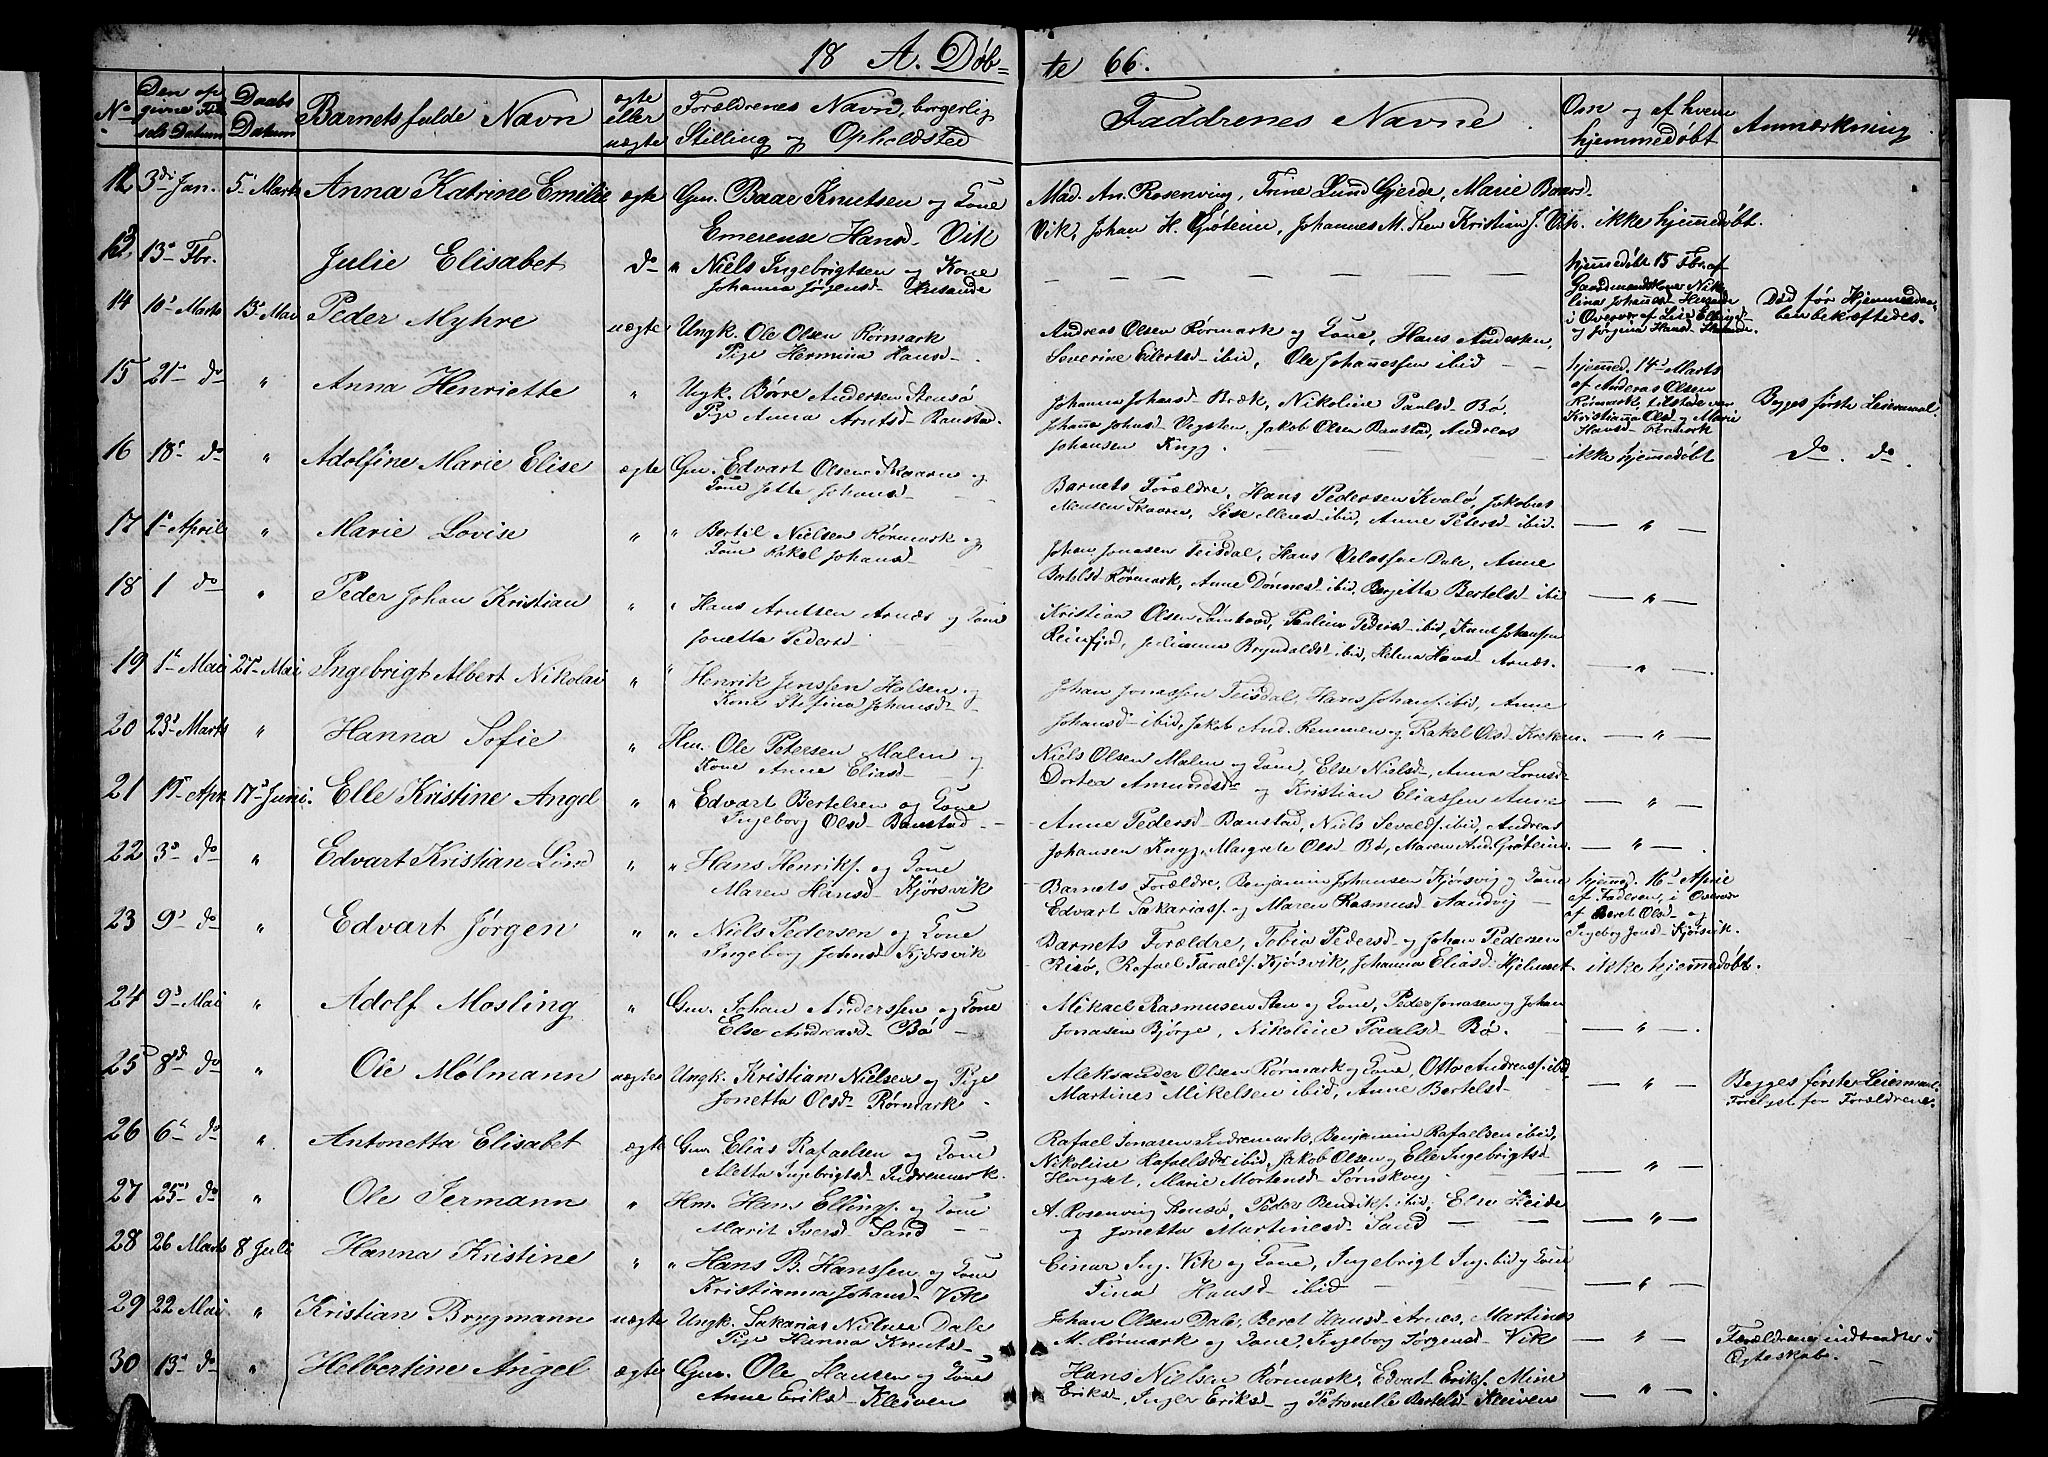 18 A. Døb-
te 66.
No
Den op
givne Fød
sels Datum
Daabs
Datum
Barnets fulde Navn
ægte
eller
uægte
Forældrenes Navn, borgerlig
Stilling og Opholdsted
Faddrenes Navne.
Om og af hvem
hjemmedøbt
Anmærkning
12 3die Jan. 5te Marts Anna Katrine Emilie ægte Gm. Baar Knutsen og Kone
Emerense Hansd- Vik
Mad. An. Rosenving, Trine Lund Gjerde, Marie Baarsd-
Vik, Johan H. Grøteim, Johannes M. Sten Kristian J. Vik. ikke hjemmedøbt.
13 13de Fbr. Julie Elisabet do " Niels Ingebrigtsen og Kone
Johanna Jørgensd- Husande
hjemmedøbt 15 Fbr. af
Gaardmandskone Nik
lina Johansd- Husande
i Overvær af
og Jørgine Hansd-
Død før Hjemmedaa-
ben bekræftedes.
14 10de Marts 13de Mai Peder Myhre uægte Ungk. Ole Olsen Rørmark
Pige Hermina Hansd-
Andreas Olsen Rørmark og Kone, Hans Andersen,
Severine Eilertsd- ibid, Ole Johanessen ibid
hjemmed. 14de Marts
af Andreas Olsen
Rørmark, tilstede var
Kristianna Olsd og Marie
Hansd- Rørmark
Begges første Leiermaal.
15 21de do " Anna Henriette " Ungk. Børre Andersen Stensø
Pige Anna Arntsd- Baustad.
Johanna Johansd- Bræk, Nikoline Paalsd- Bø,
Johanna Johnsd- Vegsten, Jakob Olsen Baustad, Andreas
Johansen Knyg.
ikke hjemmedøbt do. do.
16 18de do " Adolfine Marie Elise ægte Gm. Edvart Olsen Skaaren og
Kone Jette Johansd-
Barnets Forældre, Hans Pedersen Kvalø, Jakobus
Monsen Skaaren, Lise Monsd- ibid, Anne Petersd- ibid. — " —
17 1ste April " Marie Lovise " " Bertil Nielsen Rørmark og
Kone Rikel Johansd-
Johan Jonasen Teisdal, Hans Velassen Dale, Anne
Bertelsd- Rørmark, Anne Dønnesd- ibid, Bergitta Bertelsd- ibi — " —
18 1 do " Peder Johan Kristian " " Hans Arntsen Arnæs og Kone
Jonetta Pedersd-
Kristian Olsen Sambord, Pauline Pedersd- ibid, Knut Johansen
Reinfjord, Julianna Bryndalsd- ibid, Helena Hansd- Arnæs. — " —
19 1ste Mai 21de Mai Ingebrigt Albert Nikolai " " Henrik Jenssen Holsen og
Kone Stefina Johansd-
Johan Jonassen Teisdal, Hans Johans. ibid, Anne
Johansd- ibid, Jakob And. Renemen og Rakel Olsd- Kirksæt. — " —
20 23de Marts " Hanna Sofie " Hm. Ole Petersen Malen og
Kone Anne Eliasd-
Niels Olsen Malen og Kone, Else Nielsd-, Anna Lornsd-
Dortea Amundsd- og Kristian Eliassen Aune — " —
21 19de Apr. 17de Juni. Elle Kristine Angel " " Edvart Bertelsen og Kone
Ingeborg Olsd- Baustad
Anne Pedersd- Baustad, Niels Sevalds. ibid, Andreas
Johansen Knyg, Margrete Olsd Bø, Maren And. Grøteim. — " —
22 3de do " Edvart Kristian Lund " " Hans Henriks. og Kone
Maren Hansd- Kjørsvik
Barnets Forældre, Benjamin Johansen Kjørsvig og Kone
Edvart Sakarias. og Maren Rasmusd- Aandvig
hjemmed. 16de April
af Faderen, i Overvær
af Beret Olsd- og
Ingeborg Jonsd- Kjørsvik.
23 9de do " Edvart Jørgen " " Niels Pedersen og Kone
Ingeborg Johnsd- Kjørsvik
Barnets Forældre, Tobia Pedersd- og Johan Pedersen
Risø, Rafael Taralds. Kjørsvik, Johanna Eliasd- Hjelmset. ikke hjemmedøbt.
24 9de Mai " Adolf Mosling " Gm. Johan Anderssen og Kone
Else Andreasd- Bø
Mikael Rasmusen Sten og Kone, Peder Jonasen og Johan
Jonasen Bjørge, Nikoline Paalsd- Bø. — " —
25 8de do " Ole Mølmann uægte Ungk. Kristian Nielsen og Pige
Jonetta Olsd- Rørmark
Aleksander Olsen Rørmark og Kone, Otto Andreas. ibid
Martines Mikelsen ibid, Anne Bertelsd- — " —
Begges første Leiermaal.
Forelyst for Forældrene.
26 6te do " Antonetta Elisabet ægte Gm. Elias Rafaelsen og Kone
Aletta Ingebrigtsd- Indremark.
Rafael Jonasen Indremark, Benjamin Rafaelsen ibid,
Nikoline Rafaelsd- ibid, Jakob Olsen og Elle Ingebrigtsd-
Hongset, Marie Mortensd- Sørnskveg — " —
27 25de do " Ole Jermann " Hm. Hans Ellings. og Kone
Marit Iversd- Sand
A. Rosenving Stensø, Peder Bendiks. ibid, Else Heide
og Jonetta Martinesd- Sand — " —
28 26 Marts 8 Juli Hanna Kristine " " Hans B. Hanssen og Kone
Kristianna Johansd- Vik
Einar Ing. Vik og Kone, Ingebrigt Ing. ibid og Kone
Tina Hansd- ibid — " —
29 22 Mai " Kristian Brygmann uægte Ungk. Sakarias Nielsen Dale
Pige Hanna Knutsd-
Johan Olsen Dale, Beret Hansd- Arnes, Martines
M. Rørmark og Kone, Ingeborg Jørgensd- Vik — " —
Forældrene indtraadte i
Ægteskab.
30 13de do " Helbertine Angel ægte Gm. Ole Hansen og Kone
Anne Eriksd- Kleiven
Hans Nielsen Rørmark, Edvart Eriks. Mine
Eriksd-, Inger Eriksd- og Petronelle Bertelsd- Kleiven — " —